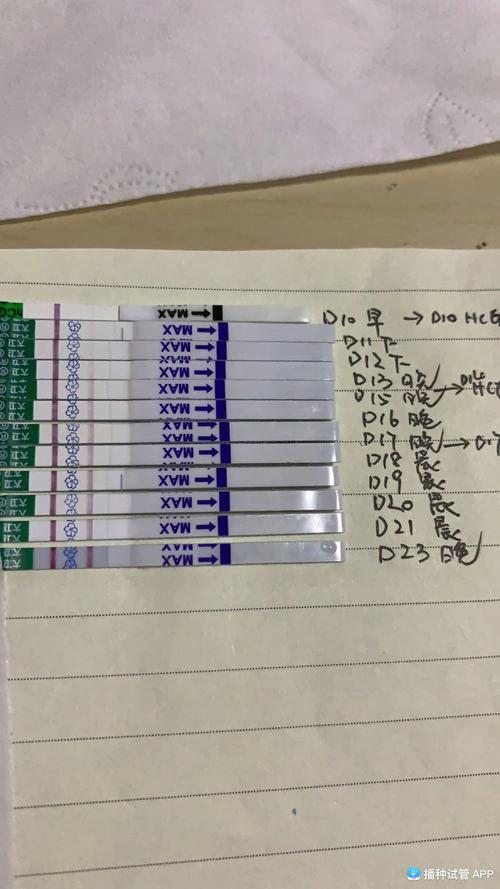 MAX
D10 早 → D10 HCG
MAX
D11 下
MAX
D12 下
MAX
D13 晚
MAX
D15 晚
MAX
D16 晚
MAX
D17 晚
MAX
D18 晨
MAX
D19 晨
MAX
D20 晨
MAX
D21 晨
MAX
D23 晚
播种试管 APP